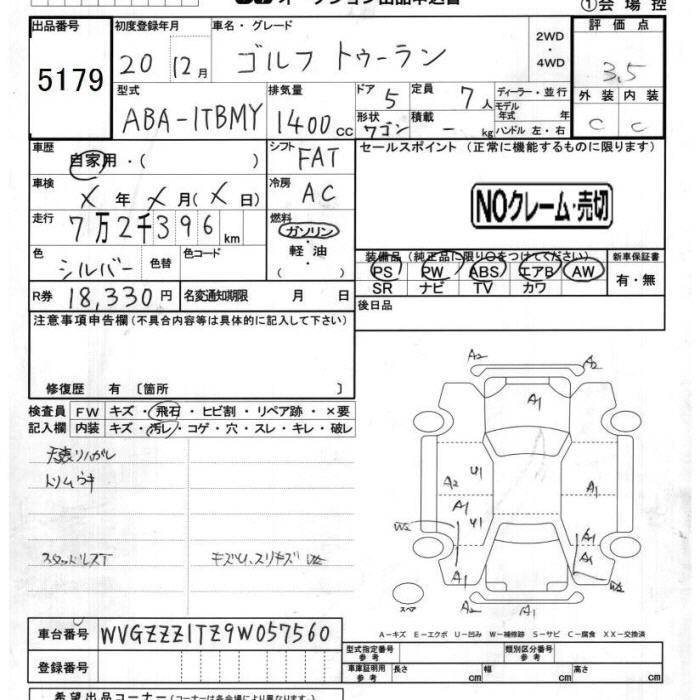 オークション出品申込書
①会場控
出品番号 5179
初度登録年月 20 12月
車名・グレード ゴルフ トゥーラン
2WD・4WD
評価点 3.5
外装 C 内装 C
型式 ABA-1TBMY
排気量 1400cc
ドア 5 定員 7人
ディーラー・並行
形状 ワゴン 積載 - kg
モデル年式 年
ハンドル 左・右
車歴 自家用・( )
シフト FAT
セールスポイント (正常に機能するものに限ります)
NOクレーム・売切
車検 X年X月(X日)
冷房 AC
走行 7万2千396km
燃料 ガソリン・軽油・( )
色 シルバー 色替 色コード
装備品(純正品に限り○をつけてください)
新車保証書 有・無
PS PW ABS エアB AW
SR ナビ TV カワ
R券 18,330円 名変通知期限 月 日
後日品
注意事項申告欄(不具合内容等は具体的に記入して下さい)
修復歴 有〔箇所 〕
検査員記入欄
FW キズ・飛石・ヒビ割・リペア跡・×要
内装 キズ・汚レ・コゲ・穴・スレ・キレ・破レ
天張リハガレ
トリムウキ
スタッドレスT
キズU、スリキズ W2
A2
A2
A1
A2 U1
A1 U1
A1
W2
A1
A1
A1
W2
A2
A1
スペア
A-キズ E-エクボ U-凹み W-補修跡 S-サビ C-腐食 XX-交換済
車台番号 WVGZZZ1TZ9W057560
型式指定番号 参考
類別区分番号 参考
登録番号
車庫証明用 参考 長さ cm 幅 cm 高さ cm
希望出品コーナー(コーナーは各会場によって異なります)